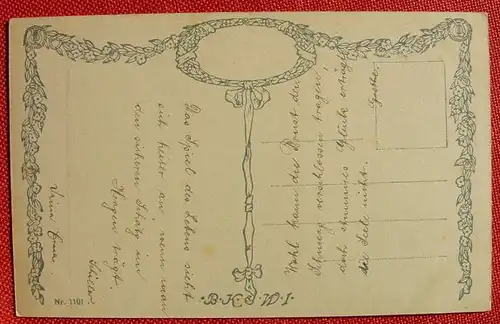 Das Spiel des Lebens sieht
sich heiter an wenn man
den sicheren Schatz im
Herzen trägt.
Schiller.
Wohl kann die Brust den
Schmerz verschlossen tragen,
doch stummes Glück erträgt
die Seele nicht.
Goethe.
Erna.
Nr. 1101
B.K.W.I.